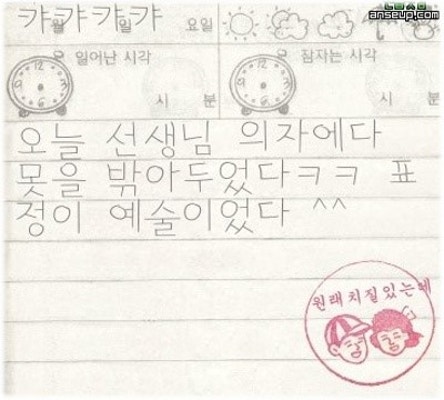 캬캬캬캬
월 일 요일
anseup.com
일어난 시각
잠자는 시각
시 분
시 분
오늘 선생님 의자에다
못을 밖아두었다ㅋㅋ 표
정이 예술이었다 ^^
원래 치질있는데